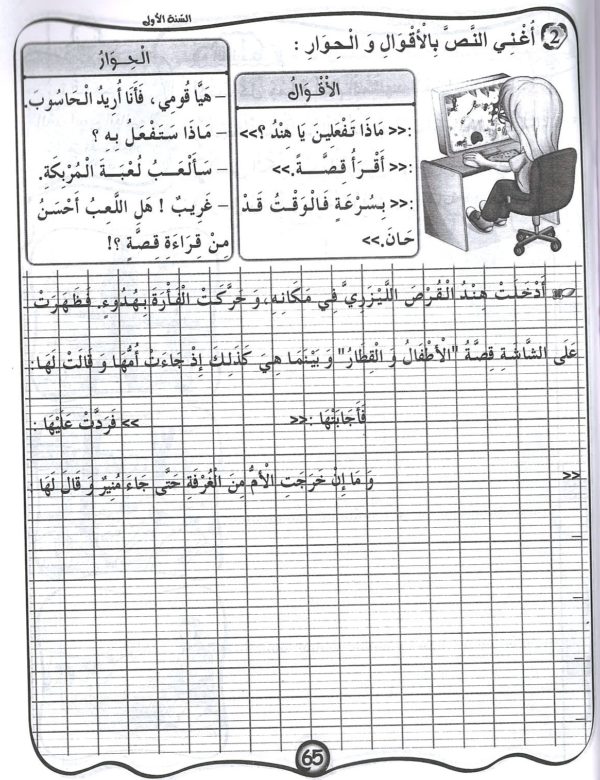 السّنة الأولى
2 أُغْنِي النَّصَّ بِالْأَقْوَالِ وَ الْحِوَارِ :
الْأَقْوَالُ
:<< مَاذَا تَفْعَلِينَ يَا هِنْدُ ؟>>
:<< أَقْرَأُ قِصَّــةً.>>
:<< بِسُرْعَةٍ فَالْوَقْتُ قَدْ
حَانَ.>>
الْحِوَارُ
– هَيَّا قُومِي، فَأَنَا أُرِيدُ الْحَاسُوبَ.
– مَاذَا سَتَفْعَلُ بِهِ ؟
– سَأَلْعَبُ لُعْبَةَ الْمُرْبِكَةِ.
– غَرِيبٌ ! هَلِ اللَّعِبُ أَحْسَنُ
مِنْ قِرَاءَةِ قِصَّةٍ ؟!
أَدْخَلَتْ هِنْدُ الْقُرْصَ اللَّيْزَرِيَّ فِي مَكَانِهِ، وَ حَرَّكَتْ الْفَأْرَةَ بِهُدُوءٍ. فَظَهَرَتْ
عَلَى الشَّاشَةِ قِصَّةُ "الْأَطْفَالُ وَ الْقِطَارُ" وَ بَيْنَمَا هِيَ كَذَلِكَ إِذْ جَاءَتْ أُمُّهَا وَ قَالَتْ لَهَا:
فَأَجَابَتْهَا :<< >> فَرَدَّتْ عَلَيْهَا :
<< وَ مَا إِنْ خَرَجَتِ الْأُمُّ مِنَ الْغُرْفَةِ حَتَّى جَاءَ مُنِيرٌ وَ قَالَ لَهَا :
65